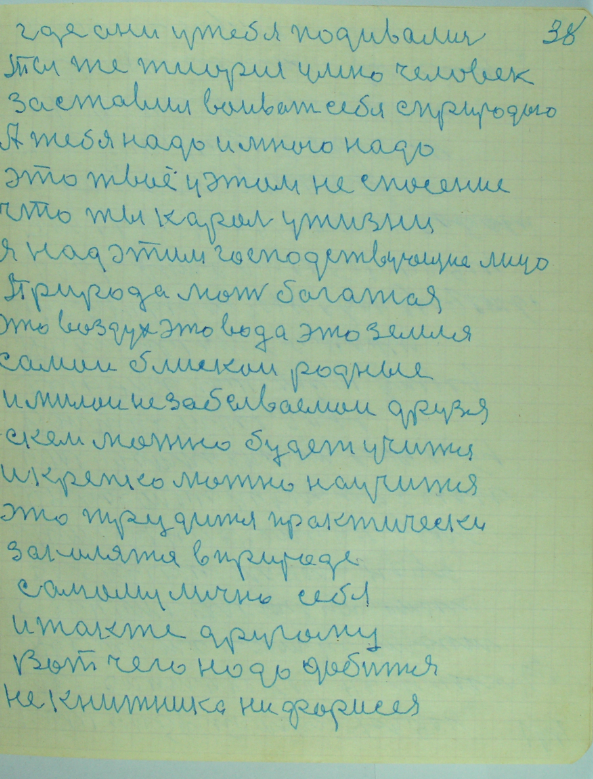 где они у тебя подивалися 38
Ты же творил умно человек
заставил воиват себя сприродою
А тебя надо имного надо
это твоё уэтом не спосение
что ты карол ужизни
я надэтим господствующие лицо
Природа мот богатая
это воздух это вода это земля
самои блискои родные
имилои незабеваемои друзя
скем можно будет учится
икрепко можно научится
это трудится практически
закалятя вприроде
самому лично себя
итакже другому
Вот чего надо добитя
не книжника нифорисея